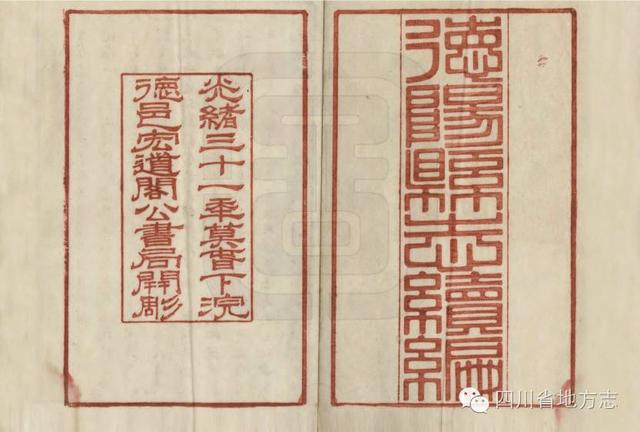 德陽縣志續編
光緒三十一年實下浣
德邑宏道閣公書局開彫
四川省地方志